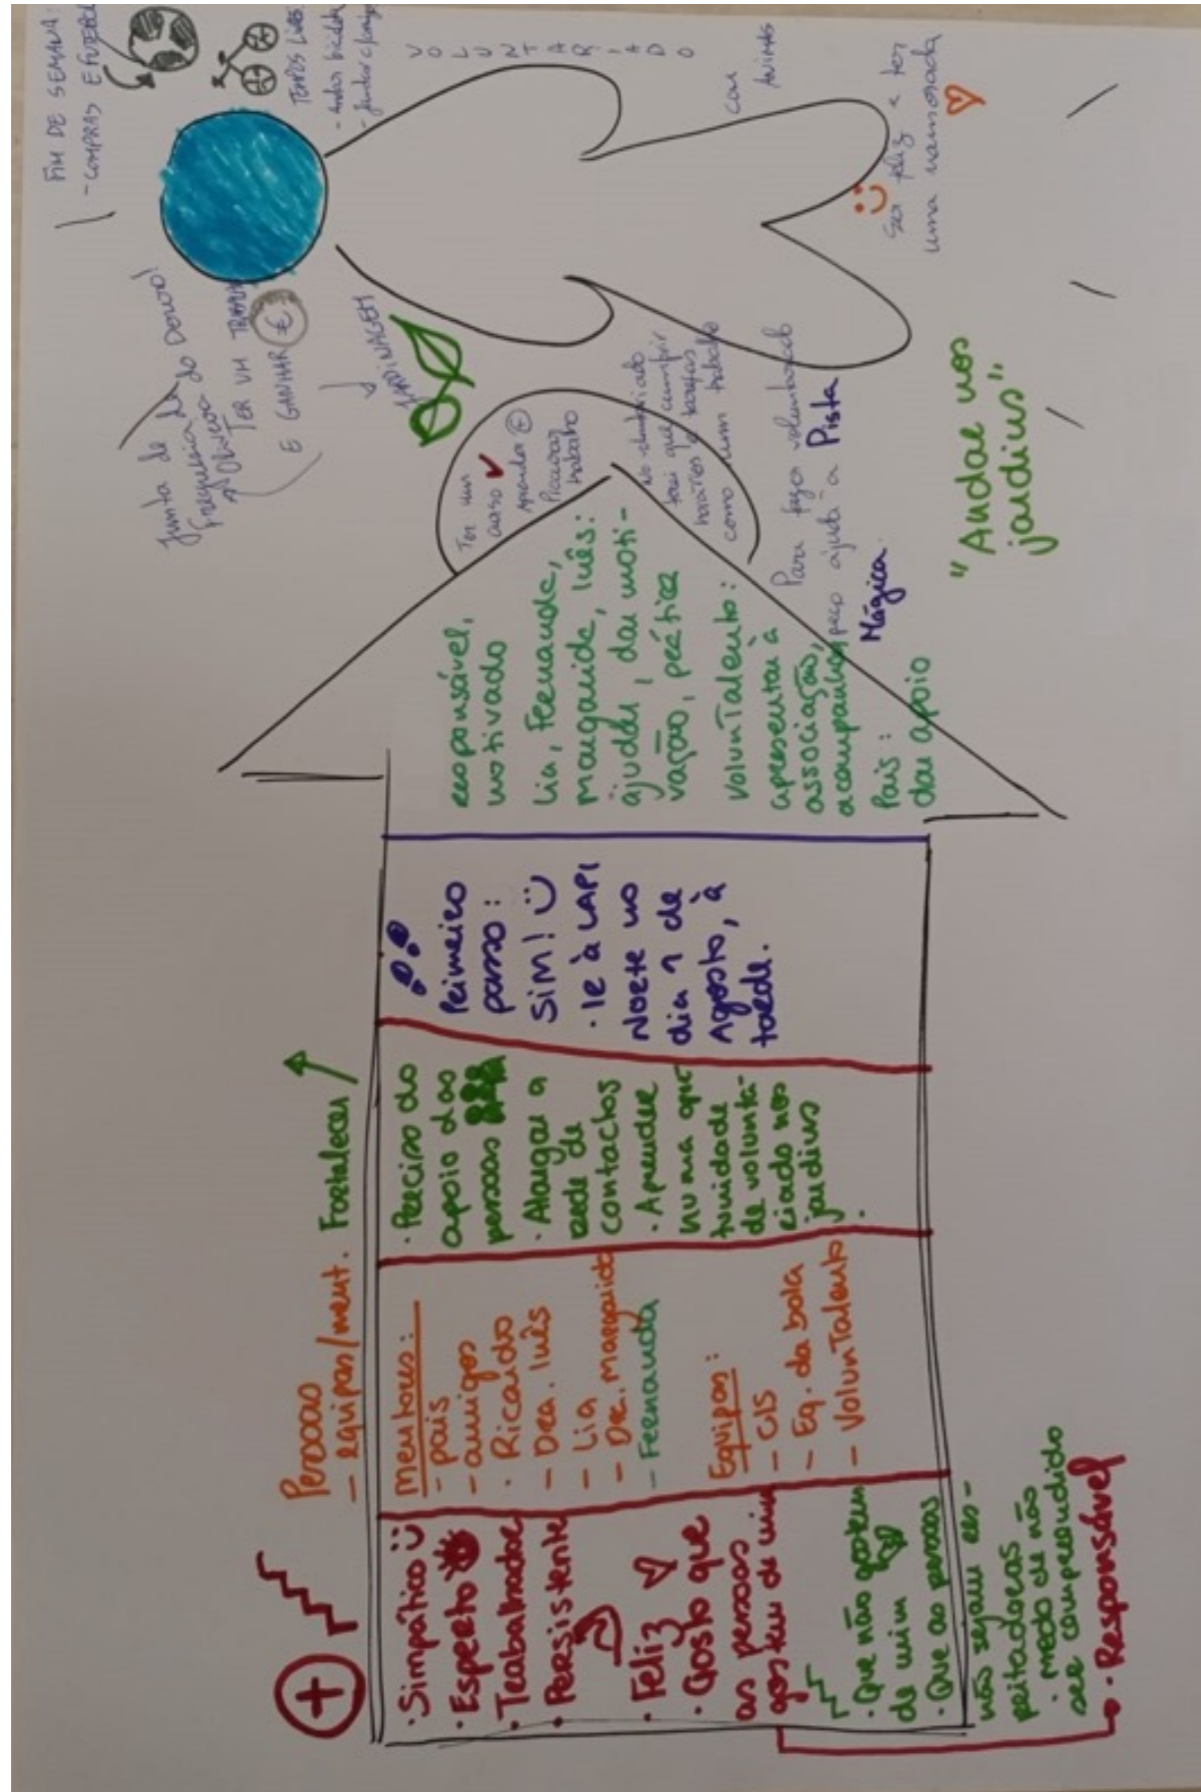 +
· Simpático
· Esperto
· Trabalhador
· Persistente
· Feliz
· Gosto que
as pessoas
gostem de mim
· Que não gostem
de mim
· Que as pessoas
não sejam res-
peitadoras
· medo de não
ser compreendido
· Responsável
Pessoas
- equipas/ment.
mentores:
- pais
- amigos
· Ricardo
- Dra. Inês
- Lia
- Dra. Margarida
- Fernanda
Equipas:
- CIS
- Eq. da bola
- VolunTalento
Fortalecer
· Preciso do
apoio das
pessoas
· Alargar a
rede de
contactos
· Aprender
numa opor-
tunidade
de volunta-
riado nos
jardins
Primeiro
passo:
SIM!
· Ir à LAPI
Norte no
dia 1 de
Agosto, à
tarde.
responsável,
motivado
Lia, Fernanda,
Margarida, Inês:
ajudar, dar moti-
vação, prática
VolunTalento:
apresentar à
associação,
acompanhar
Pais:
dar apoio
Ter um
curso
Aprender
Procurar
trabalho
No voluntariado
tem que cumprir
horários e tarefas
como num trabalho
Para fazer voluntariado
peço ajuda à Pista
Mágica
"Andar nos
jardins"
Junta de
Freguesia do Douro!
Objetivo
TER UM TRABALHO
E GANHAR €
JARDINAGEM
FIM DE SEMANA:
- COMPRAS E FUTEBOL
TEMPOS LIVRES
- Andar bicicleta
- Jantar c/ amigos
VOLUNTARIADO
COM
ANIMAIS
Ser feliz e ter
uma namorada